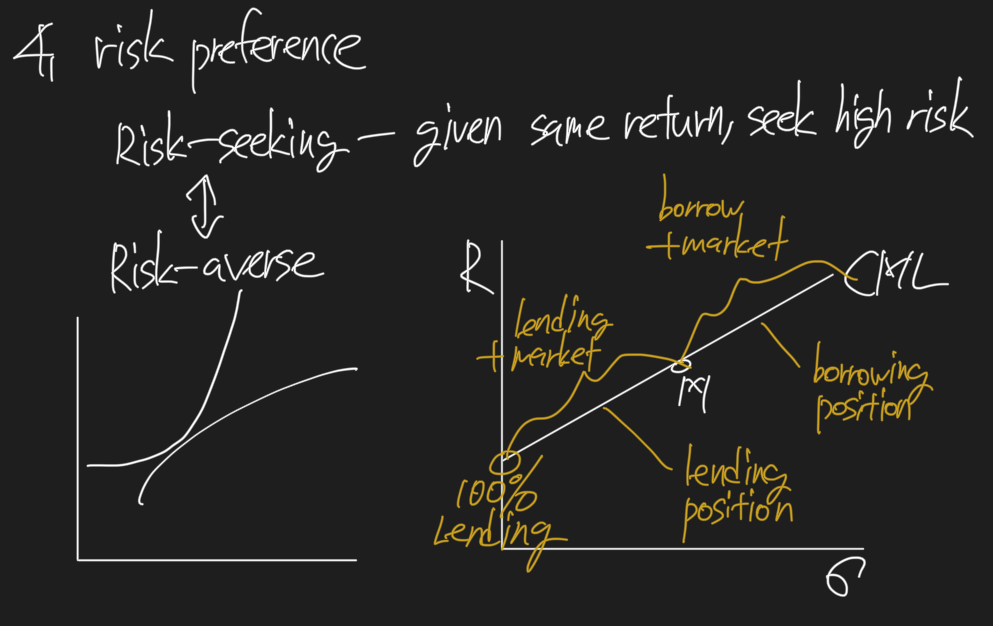 4, risk preference
Risk-seeking — given same return, seek high risk
↕
Risk-averse
R
borrow
+market
CML
lending
+market
M
borrowing
position
lending
position
100%
Lending
σ